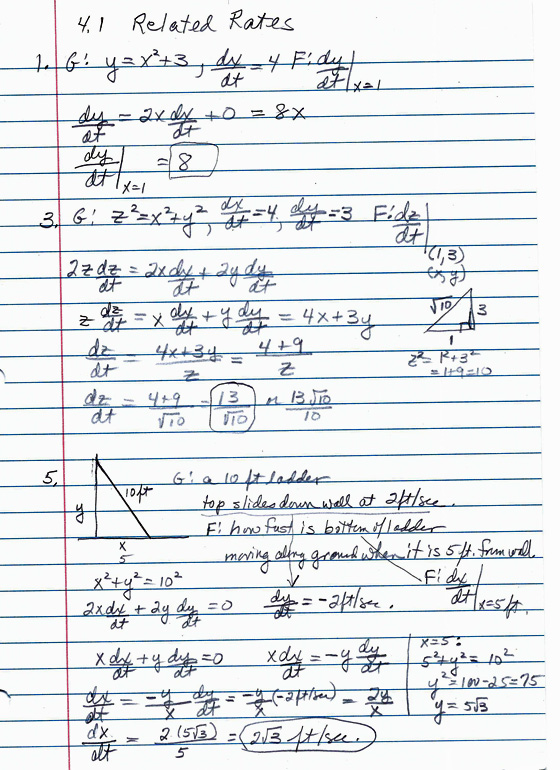 4.1 Related Rates
1. G: y = x²+3, dx/dt = 4 F: dy/dt |x=1
dy/dt = 2x dx/dt + 0 = 8x
dy/dt |x=1 = 8
3. G: z² = x²+y², dx/dt = 4, dy/dt = 3 F: dz/dt |(1,3)
(x,y)
2z dz/dt = 2x dx/dt + 2y dy/dt
z dz/dt = x dx/dt + y dy/dt = 4x+3y
√10 3
1
dz/dt = (4x+3y)/z = (4+9)/z
z² = 1²+3²
= 1+9 = 10
dz/dt = (4+9)/√10 = 13/√10 or 13√10/10
5. G: a 10 ft ladder
10 ft
top slides down wall at 2ft/sec.
y
F: how fast is bottom of ladder
x
5
moving along ground when it is 5 ft. from wall.
x²+y² = 10²
F: dx/dt |x=5 ft.
2x dx/dt + 2y dy/dt = 0 dy/dt = -2ft/sec.
x dx/dt + y dy/dt = 0 x dx/dt = -y dy/dt
x=5:
5²+y² = 10²
y² = 100-25 = 75
y = 5√3
dx/dt = -y/x dy/dt = -y/x (-2ft/sec) = 2y/x
dx/dt = 2(5√3)/5 = 2√3 ft/sec.